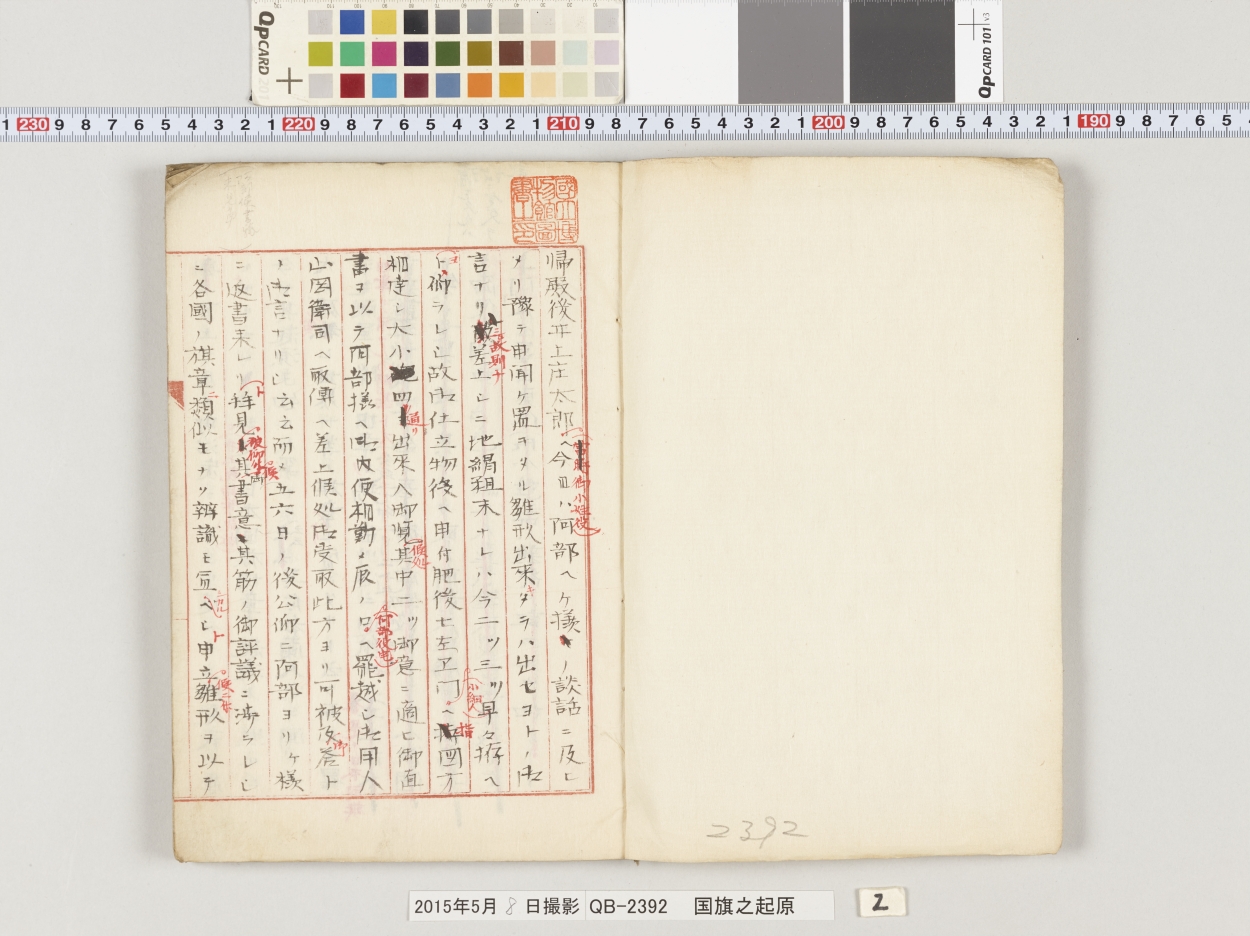 帰殿後井上庄太郎ヘ今日ハ阿部ヘケ様ノ談話ニ及ヒ
メリ豫テ申聞ケ置ヲタル雛形出来タラハ出セヨトノ御
言ナリ差上シニ地絹粗末ナレハ今二ツ三ツ早々拵ヘ
ト仰ラレシ故御仕立物後ヘ申付肥後七左エ門ヘ図方
相達シ大小四出来入御覧其中二ツ御意ニ適ヒ御直
書ヲ以テ阿部様ヘ御内便相勤メ辰ノ口ヘ罷越シ御用人
山岡衛司ヘ取傳ヘ差上候処御受取此方ヨリ可被及答ト
ノ御言ナリシ云云而メ五六日ノ後公仰ニ阿部ヨリケ様
ニ返書来レリ拝見其書意其筋ノ御評議ニ渉ラレシ
ニ各國ノ旗章類似モナク辨識モ宜ヘシ申立雛形ヲ以テ
當時御小姓役
三故則ナ
通リ
候処
小細人
指
阿部役宅
御
被仰候
2392
QPCARD 201
QPCARD 101 v3
1 230 9 8 7 6 5 4 3 2 1 220 9 8 7 6 5 4 3 2 1 210 9 8 7 6 5 4 3 2 1 200 9 8 7 6 5 4 3 2 1 190 9 8 7 6 5
2015年5月 8 日撮影 QB-2392 国旗之起原
2